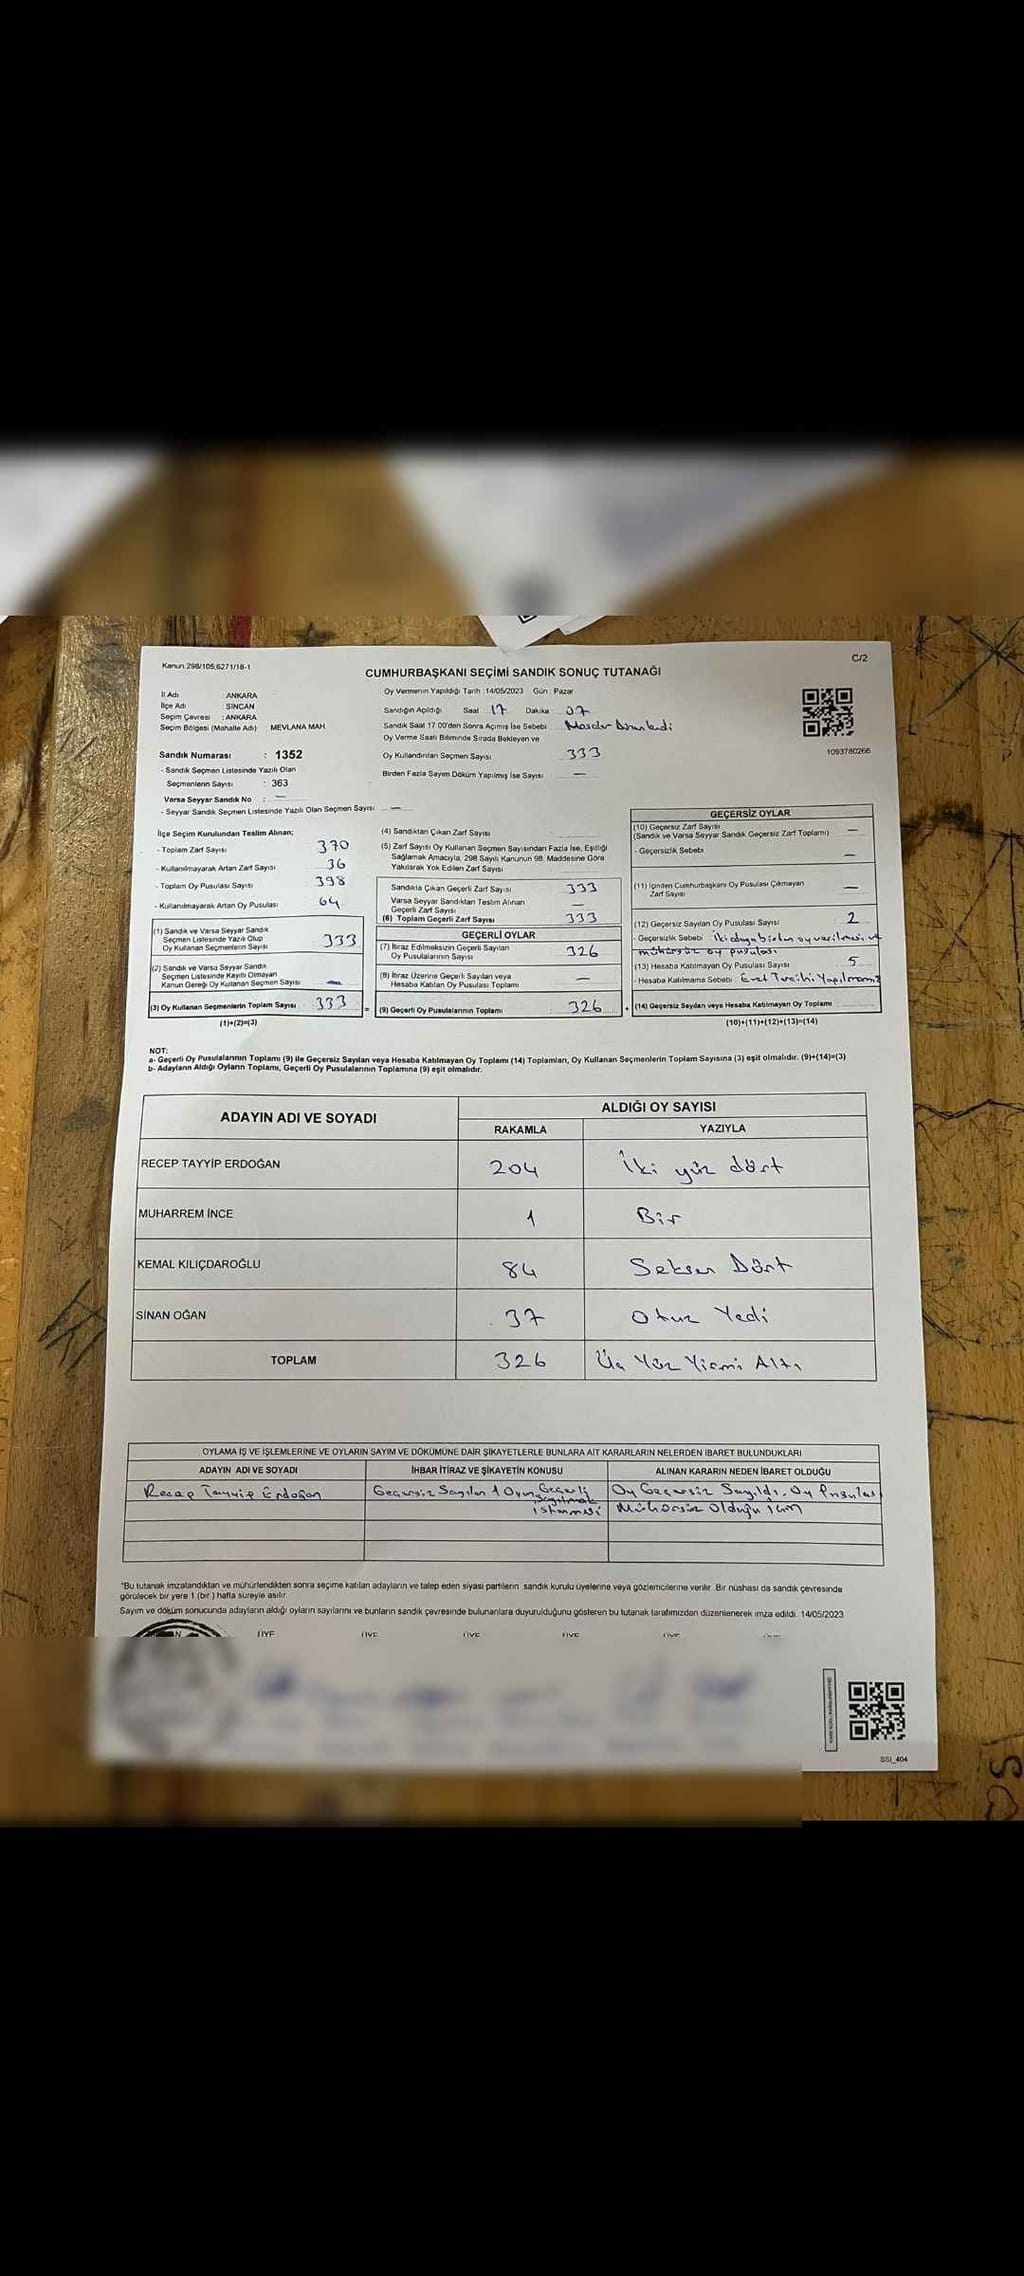 Kanun 298/105,6271/18-1
C/2
CUMHURBAŞKANI SEÇİMİ SANDIK SONUÇ TUTANAĞI
İl Adı : ANKARA
İlçe Adı : SİNCAN
Seçim Çevresi : ANKARA
Seçim Bölgesi (Mahalle Adı) MEVLANA MAH.
Oy Vermenin Yapıldığı Tarih :14/05/2023 Gün : Pazar
Sandığın Açıldığı Saat 17 Dakika : 07
Sandık Saat 17.00'den Sonra Açımış İse Sebebi
Oy Verme Saati Bitiminde Sırada Bekleyen ve
Oy Kullandırılan Seçmen Sayısı 333
Birden Fazla Sayım Döküm Yapılmış İse Sayısı —
1093780266
Sandık Numarası : 1352
- Sandık Seçmen Listesinde Yazılı Olan
Seçmenlerin Sayısı : 363
Varsa Seyyar Sandık No : —
- Seyyar Sandık Seçmen Listesinde Yazılı Olan Seçmen Sayısı —
İlçe Seçim Kurulundan Teslim Alınan;
- Toplam Zarf Sayısı 370
- Kullanılmayarak Artan Zarf Sayısı 36
- Toplam Oy Pusulası Sayısı 398
- Kullanılmayarak Artan Oy Pusulası 64
(1) Sandık ve Varsa Seyyar Sandık
Seçmen Listesinde Yazılı Olup
Oy Kullanan Seçmenlerin Sayısı 333
(2) Sandık ve Varsa Seyyar Sandık
Seçmen Listesinde Kayıtlı Olmayan
Kanun Gereği Oy Kullanan Seçmen Sayısı —
(3) Oy Kullanan Seçmenlerin Toplam Sayısı 333
(1)+(2)=(3)
(4) Sandıktan Çıkan Zarf Sayısı
(5) Zarf Sayısı Oy Kullanan Seçmen Sayısından Fazla İse, Eşitliği
Sağlamak Amacıyla, 298 Sayılı Kanunun 98. Maddesine Göre
Yakılarak Yok Edilen Zarf Sayısı
Sandıkta Çıkan Geçerli Zarf Sayısı 333
Varsa Seyyar Sandıktan Teslim Alınan
Geçerli Zarf Sayısı —
(6) Toplam Geçerli Zarf Sayısı 333
GEÇERLİ OYLAR
(7) İtiraz Edilmeksizin Geçerli Sayılan
Oy Pusulalarının Sayısı 326
(8) İtiraz Üzerine Geçerli Sayılan veya
Hesaba Katılan Oy Pusulası Toplamı —
= (9) Geçerli Oy Pusulalarının Toplamı 326 +
GEÇERSİZ OYLAR
(10) Geçersiz Zarf Sayısı
(Sandık ve Varsa Seyyar Sandık Geçersiz Zarf Toplamı) —
- Geçersizlik Sebebi —
(11) İçinden Cumhurbaşkanı Oy Pusulası Çıkmayan
Zarf Sayısı —
(12) Geçersiz Sayılan Oy Pusulası Sayısı 2
- Geçersizlik Sebebi İki adaya birden oy verilmesi ve
mühürsüz oy pusulası
(13) Hesaba Katılmayan Oy Pusulası Sayısı 5
- Hesaba Katılmama Sebebi: Evet Tercihi Yapılmamış
(14) Geçersiz Sayılan veya Hesaba Katılmayan Oy Toplamı
(10)+(11)+(12)+(13)=(14)
NOT:
a- Geçerli Oy Pusulalarının Toplamı (9) ile Geçersiz Sayılan veya Hesaba Katılmayan Oy Toplamı (14) Toplamları, Oy Kullanan Seçmenlerin Toplam Sayısına (3) eşit olmalıdır. (9)+(14)=(3)
b- Adayların Aldığı Oyların Toplamı, Geçerli Oy Pusulalarının Toplamına (9) eşit olmalıdır.
ADAYIN ADI VE SOYADI
ALDIĞI OY SAYISI
RAKAMLA YAZIYLA
RECEP TAYYİP ERDOĞAN 204 İki yüz dört
MUHARREM İNCE 1 Bir
KEMAL KILIÇDAROĞLU 84 Seksen Dört
SİNAN OĞAN 37 Otuz Yedi
TOPLAM 326 Üç Yüz Yirmi Altı
OYLAMA İŞ VE İŞLEMLERİNE VE OYLARIN SAYIM VE DÖKÜMÜNE DAİR ŞİKAYETLERLE BUNLARA AİT KARARLARIN NELERDEN İBARET BULUNDUKLARI
ADAYIN ADI VE SOYADI İHBAR İTİRAZ VE ŞİKAYETİN KONUSU ALINAN KARARIN NEDEN İBARET OLDUĞU
Recep Tayyip Erdoğan Geçersiz Sayılan 1 Oyun Geçerli Oy Geçersiz Sayıldı. Oy Pusulası
Sayılmak
istenmesi Mühürsüz Olduğu İçin
"Bu tutanak imzalandıktan ve mühürlendikten sonra seçime katılan adayların ve talep eden siyasi partilerin sandık kurulu üyelerine veya gözlemcilerine verilir. Bir nüshası da sandık çevresinde
görülecek bir yere 1 (bir) hafta süreyle asılır.
Sayım ve döküm sonucunda adayların aldığı oyların sayılarını ve bunların sandık çevresinde bulunanlara duyurulduğunu gösteren bu tutanak tarafımızdan düzenlenerek imza edildi. 14/05/2023
ÜYE ÜYE ÜYE ÜYE ÜYE
SSI_404